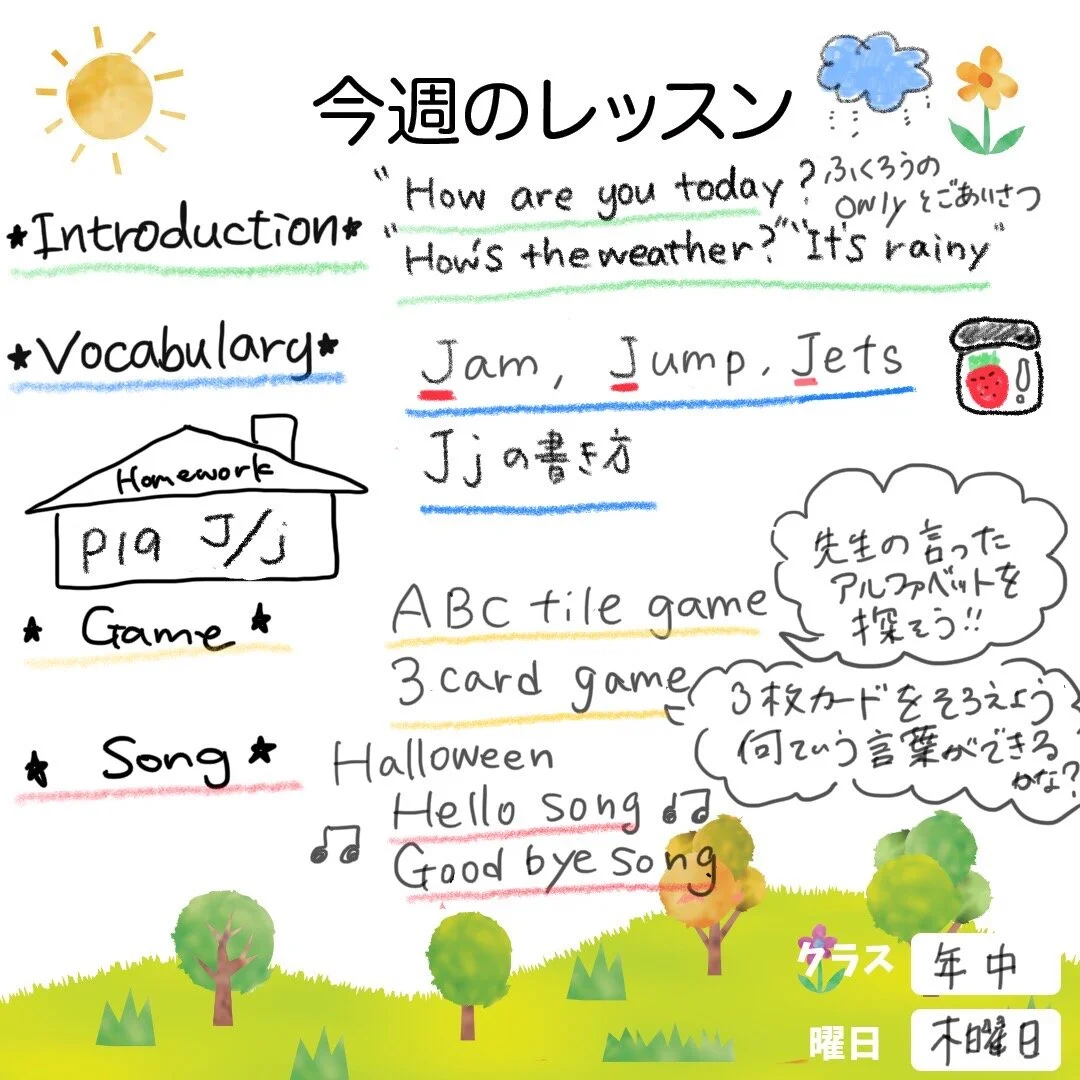 今週のレッスン
"How are you today?"
ふくろうの
Onlyとごあいさつ
*Introduction*
"How's the weather?" "It's rainy"
★Vocabulary★
Jam, Jump, Jets
Jjの書き方
Homework
P19 J/j
先生の言った
アルファベットを
探そう!!
★Game★
ABC tile game
3 card game
3枚カードをそろえよう
何ていう言葉ができる
かな?
★Song★
Halloween
Hello song
Good bye song
クラス 年中
曜日 木曜日